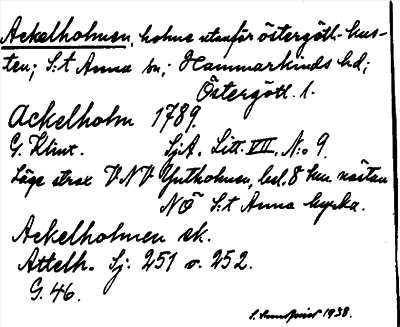 Ackelholmen, holme utanför östergötl. kus-
ten; S:t Anna sn; Hammarkinds hd;
Östergötl. l.
Ackelholm 1789.
G. Klint. SjA. Litt. VII, N:o 9.
Läge strax VNV Ytholmen, bel. 8 km nästan
NO S:t Anna kyrka.
Ackelholmen sk.
Attelh. Sj: 251 o. 252.
G. 46.
1938.